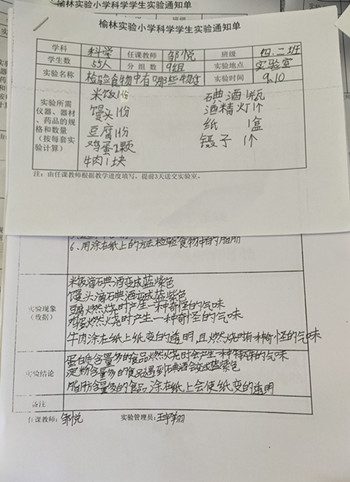 榆林实验小学科学学生实验通知单
榆林实验小学科学学生实验通知单
学科 科学 任课教师 邹悦 班级 四.二班
学生数 55人 分组数 9组 实验地点 实验室
实验名称 检验食物中有哪些物质 实验时间 9.10
实验所需仪器、器材、药品的规格和数量（按每套实验计算）
米饭1份 碘酒1瓶
馒头1份 酒精灯1个
豆腐1份 纸 1盒
鸡蛋1颗 镊子 1个
牛肉1块
注：由任课教师根据教学进度填写，提前3天送交实验室。
6、用涂在纸上的方法检验食物中的脂肪
实验现象（数据）
米饭滴碘酒变成蓝紫色
馒头滴碘酒变成蓝紫色
豆腐燃烧时产生一种奇怪的气味
鸡蛋燃烧时产生一种奇怪的气味
牛肉涂在纸上纸变的透明，且燃烧时有一种奇怪的气味
实验结论
蛋白质含量多的食品燃烧时会产生一种特殊的气味
淀粉含量多的食品遇到碘酒会变成蓝紫色
脂肪含量多的食品涂在纸上会使纸变的透明
备注
任课教师：邹悦 实验管理员：